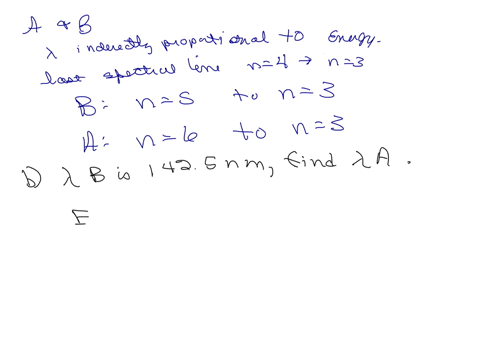 A & B
λ inderectly propational to Energy.
last spectral line n=4 → n=3
B: n=5 to n=3
A: n=6 to n=3
b) λ B is 142.5nm, find λ A .
E